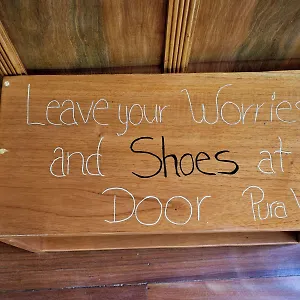 Leave your Worries
and Shoes at
Door Pura V